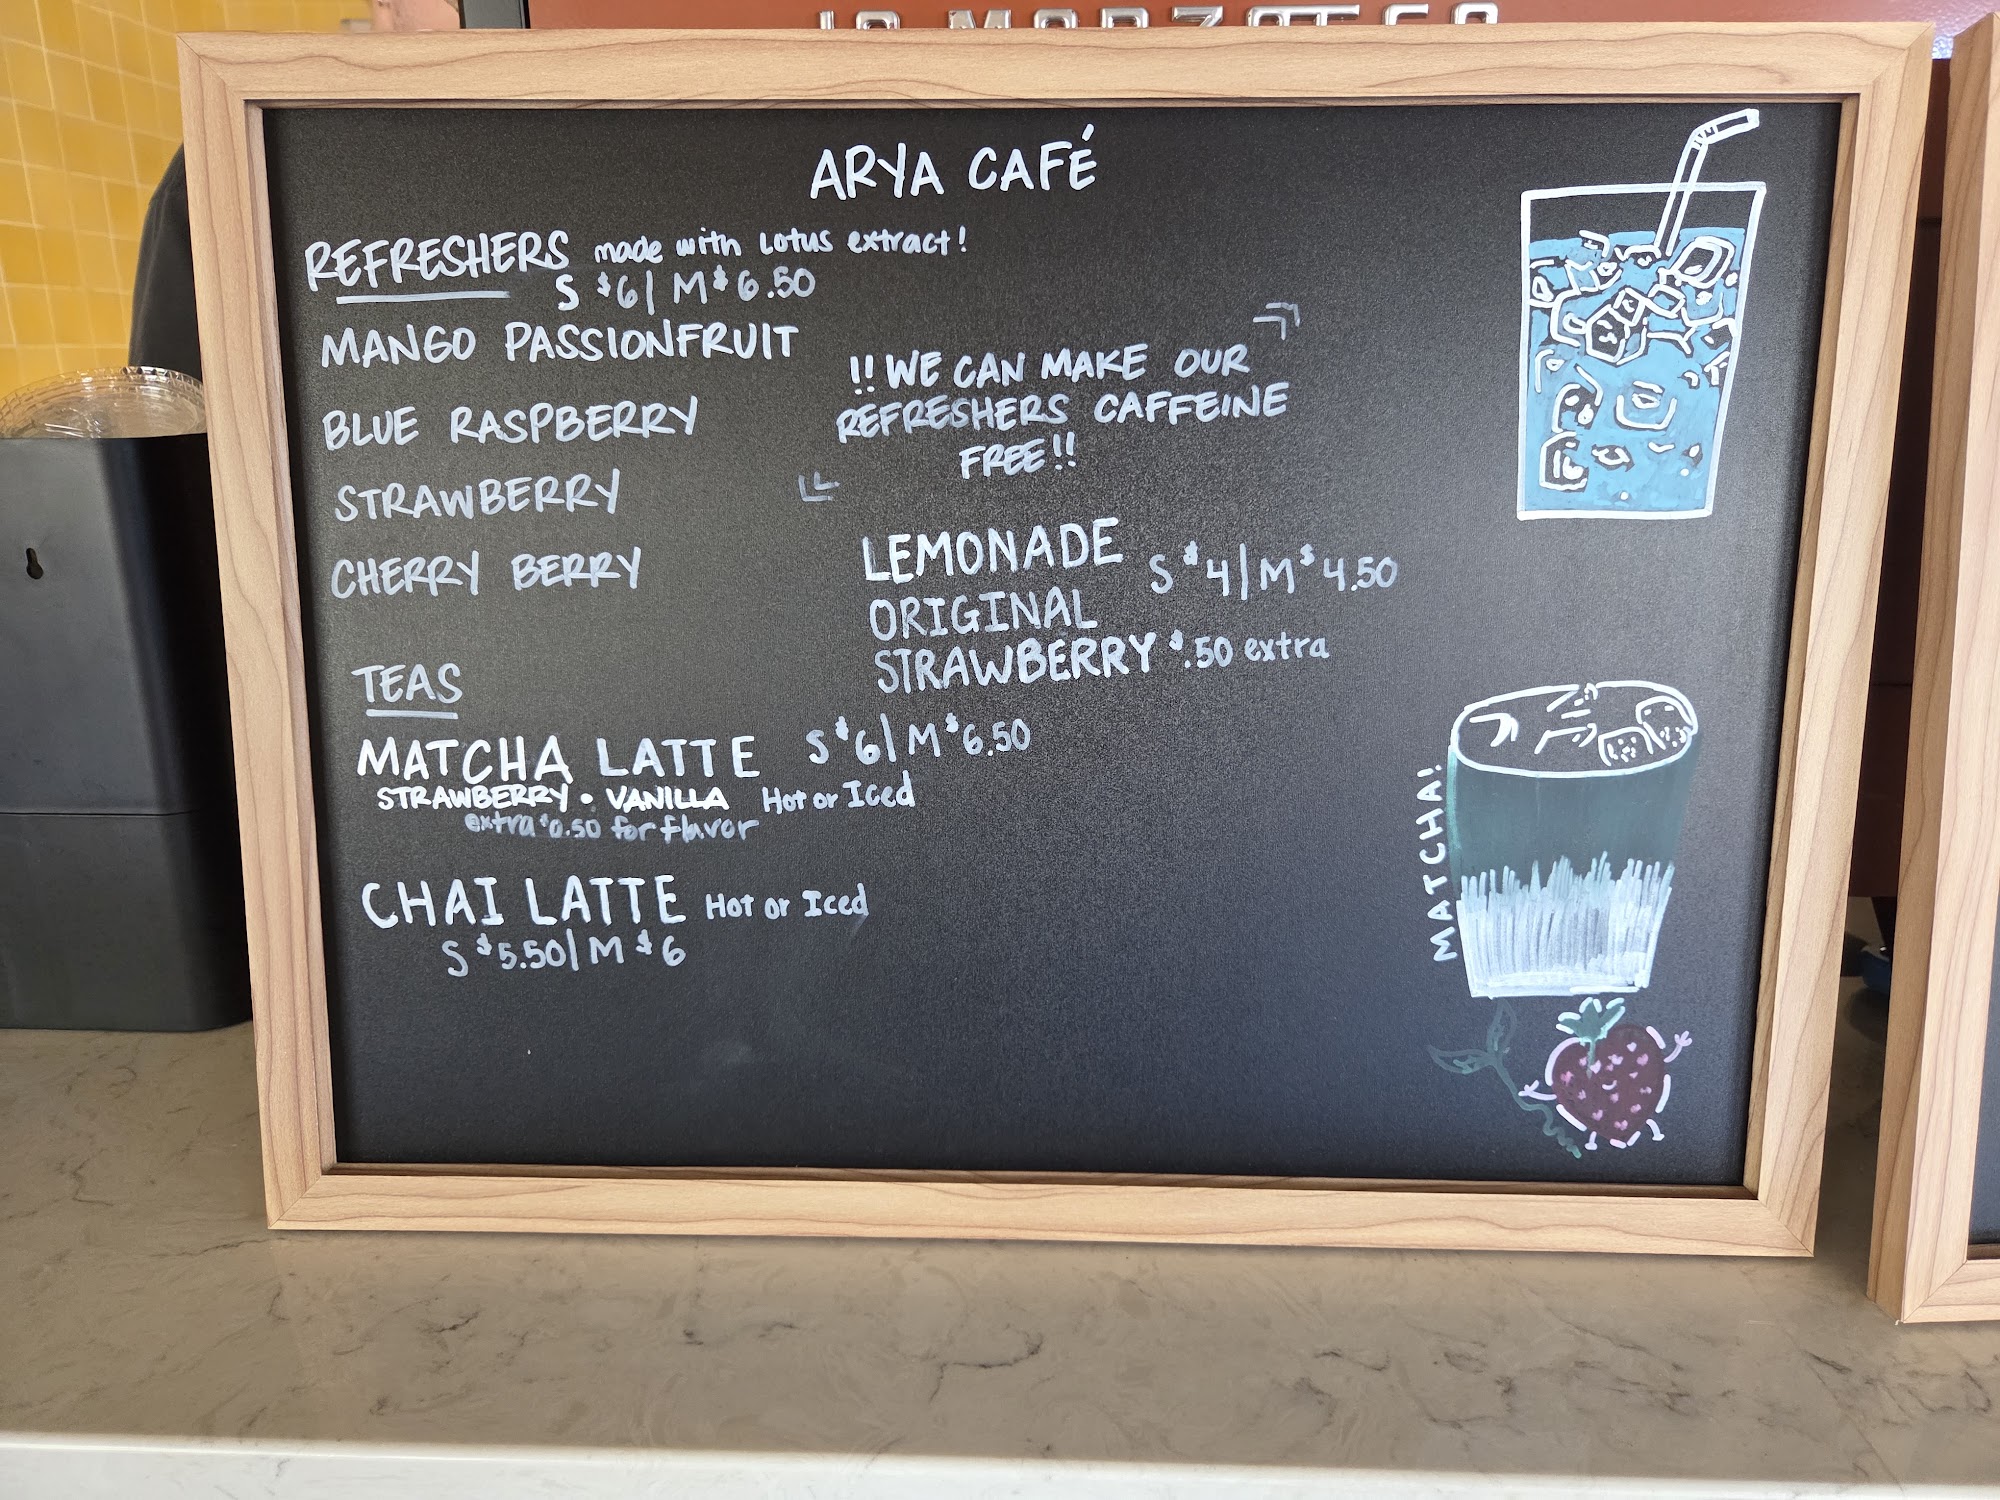 la marzocco
ARYA CAFÉ
REFRESHERS made with Lotus extract!
S $6 | M $6.50
MANGO PASSIONFRUIT
BLUE RASPBERRY
STRAWBERRY
CHERRY BERRY
!! WE CAN MAKE OUR
REFRESHERS CAFFEINE
FREE!!
LEMONADE S $4 | M $4.50
ORIGINAL
STRAWBERRY $.50 extra
TEAS
MATCHA LATTE S $6 | M $6.50
STRAWBERRY • VANILLA Hot or Iced
extra $0.50 for flavor
CHAI LATTE Hot or Iced
S $5.50 | M $6
MATCHA!